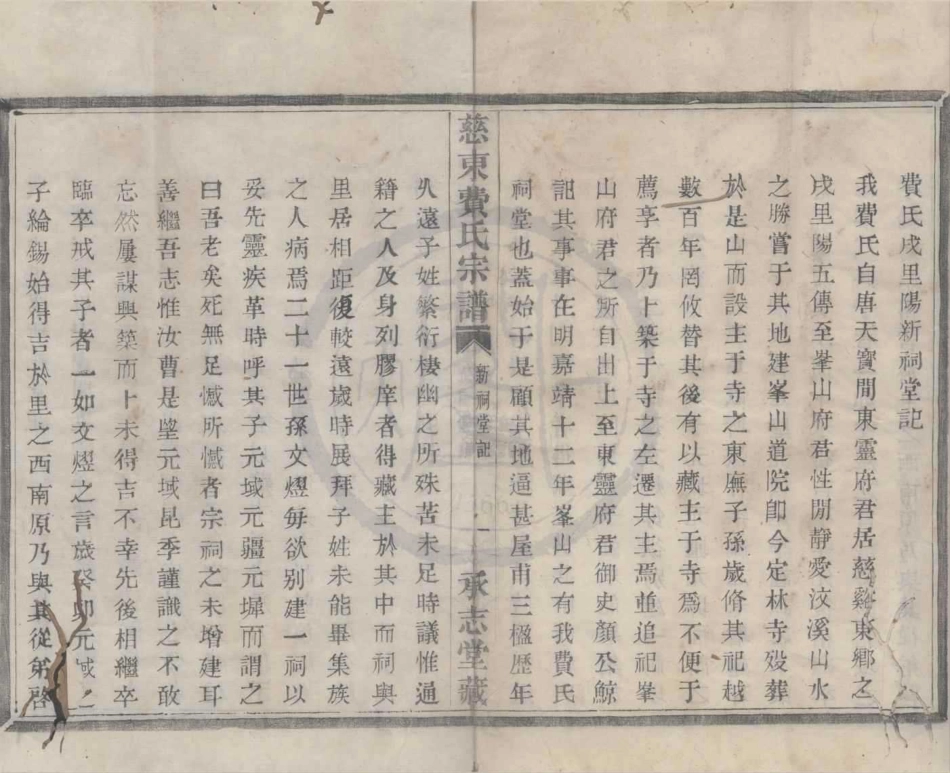 費氏戌里陽新祠堂記
我費氏自唐天寶間東靈府君居慈谿東鄉之
戌里陽五傳至峯山府君性閒靜愛汶溪山水
之勝嘗于其地建峯山道院卽今定林寺歿葬
於是山而設主于寺之東廡子孫歲脩其祀越
數百年罔攸替其後有以藏主于寺爲不便于
薦享者乃卜築于寺之左遷其主焉並追祀峯
山府君之所自出上至東靈府君御史顏公鯨
記其事事在明嘉靖十二年峯山之有我費氏
祠堂也蓋始于是顧其地逼甚屋甫三楹歷年
慈東費氏宗譜 新祠堂記 一 承志堂藏
久遠子姓繁衍棲幽之所殊苦未足時議惟通
籍之人及身列膠庠者得藏主於其中而祠與
里居相距復較遠歲時展拜子姓未能畢集族
之人病焉二十一世孫文熤每欲别建一祠以
妥先靈疾革時呼其子元域元疆元墀而謂之
曰吾老矣死無足憾所憾者宗祠之未增建耳
善繼吾志惟汝曹是望元域昆季謹識之不敢
忘然屢謀興築而卜未得吉不幸先後相繼卒
臨卒戒其子者一如文熤之言歲癸卯元域之
子綸錫始得吉於里之西南原乃與其從弟啓